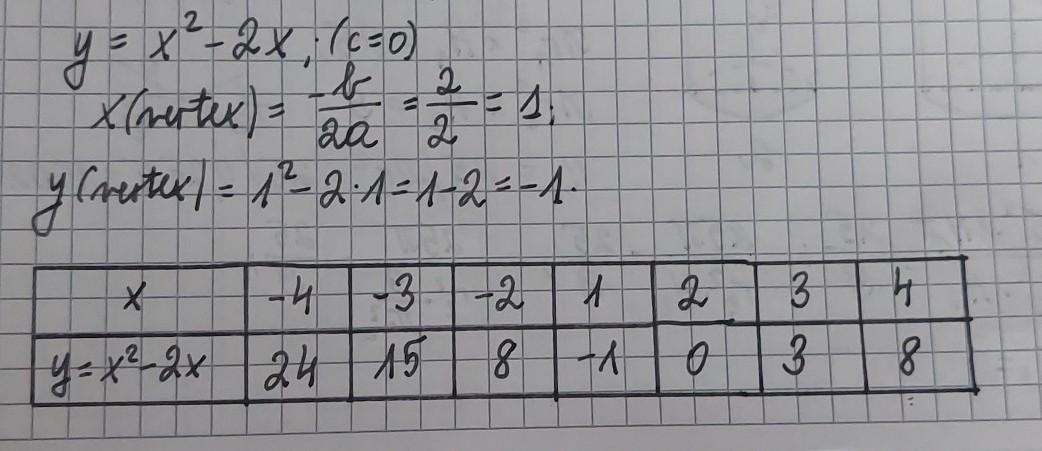 y = x² - 2x ; (c=0)
x(vertex) = -b/2a = 2/2 = 1;
y(vertex) = 1² - 2·1 = 1 - 2 = -1.
x -4 -3 -2 1 2 3 4
y = x² - 2x 24 15 8 -1 0 3 8